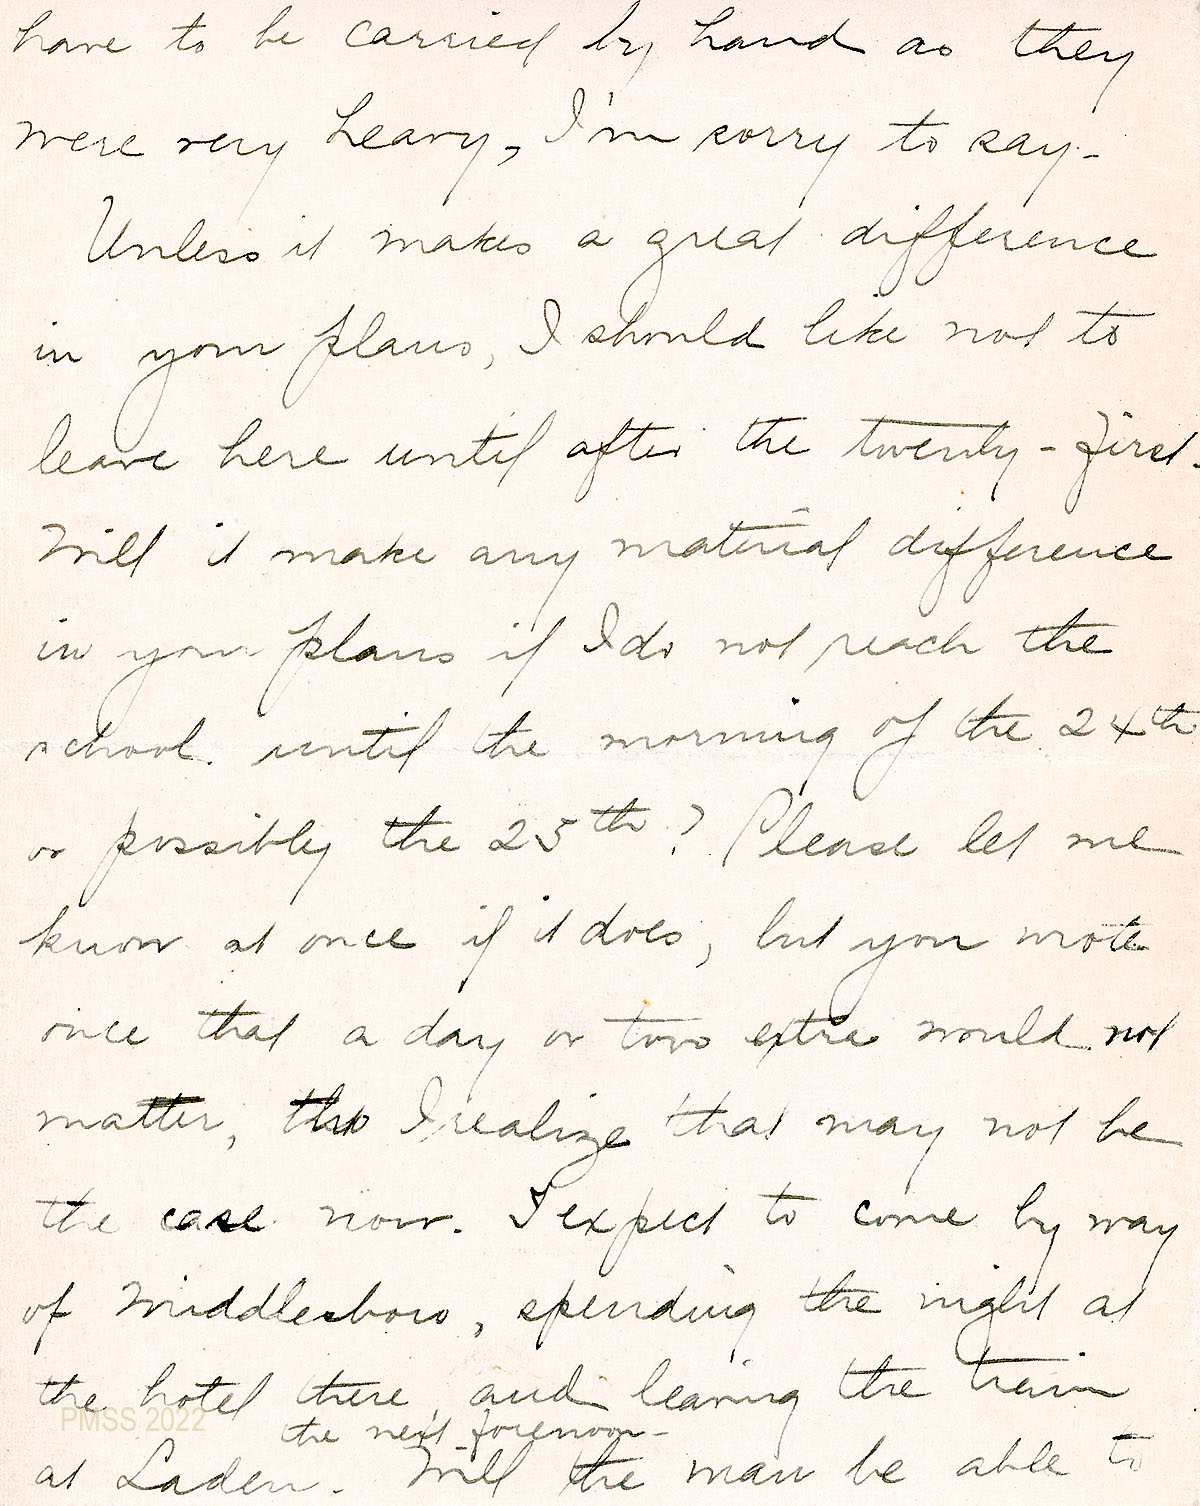 have to be carried by hand as they
were very heavy, I'm sorry to say.
Unless it makes a great difference
in your plans, I should like not to
leave here until after the twenty-first.
Will it make any material difference
in your plans if I do not reach the
school until the morning of the 24th
or possibly the 25th? Please let me
know at once if it does, but you wrote
once that a day or two extra would not
matter, tho I realize that may not be
the case now. I expect to come by way
of Middlesboro, spending the night at
the hotel there, and leaving the train
the next forenoon-
at Laden. Will the man be able to
PMSS 2022